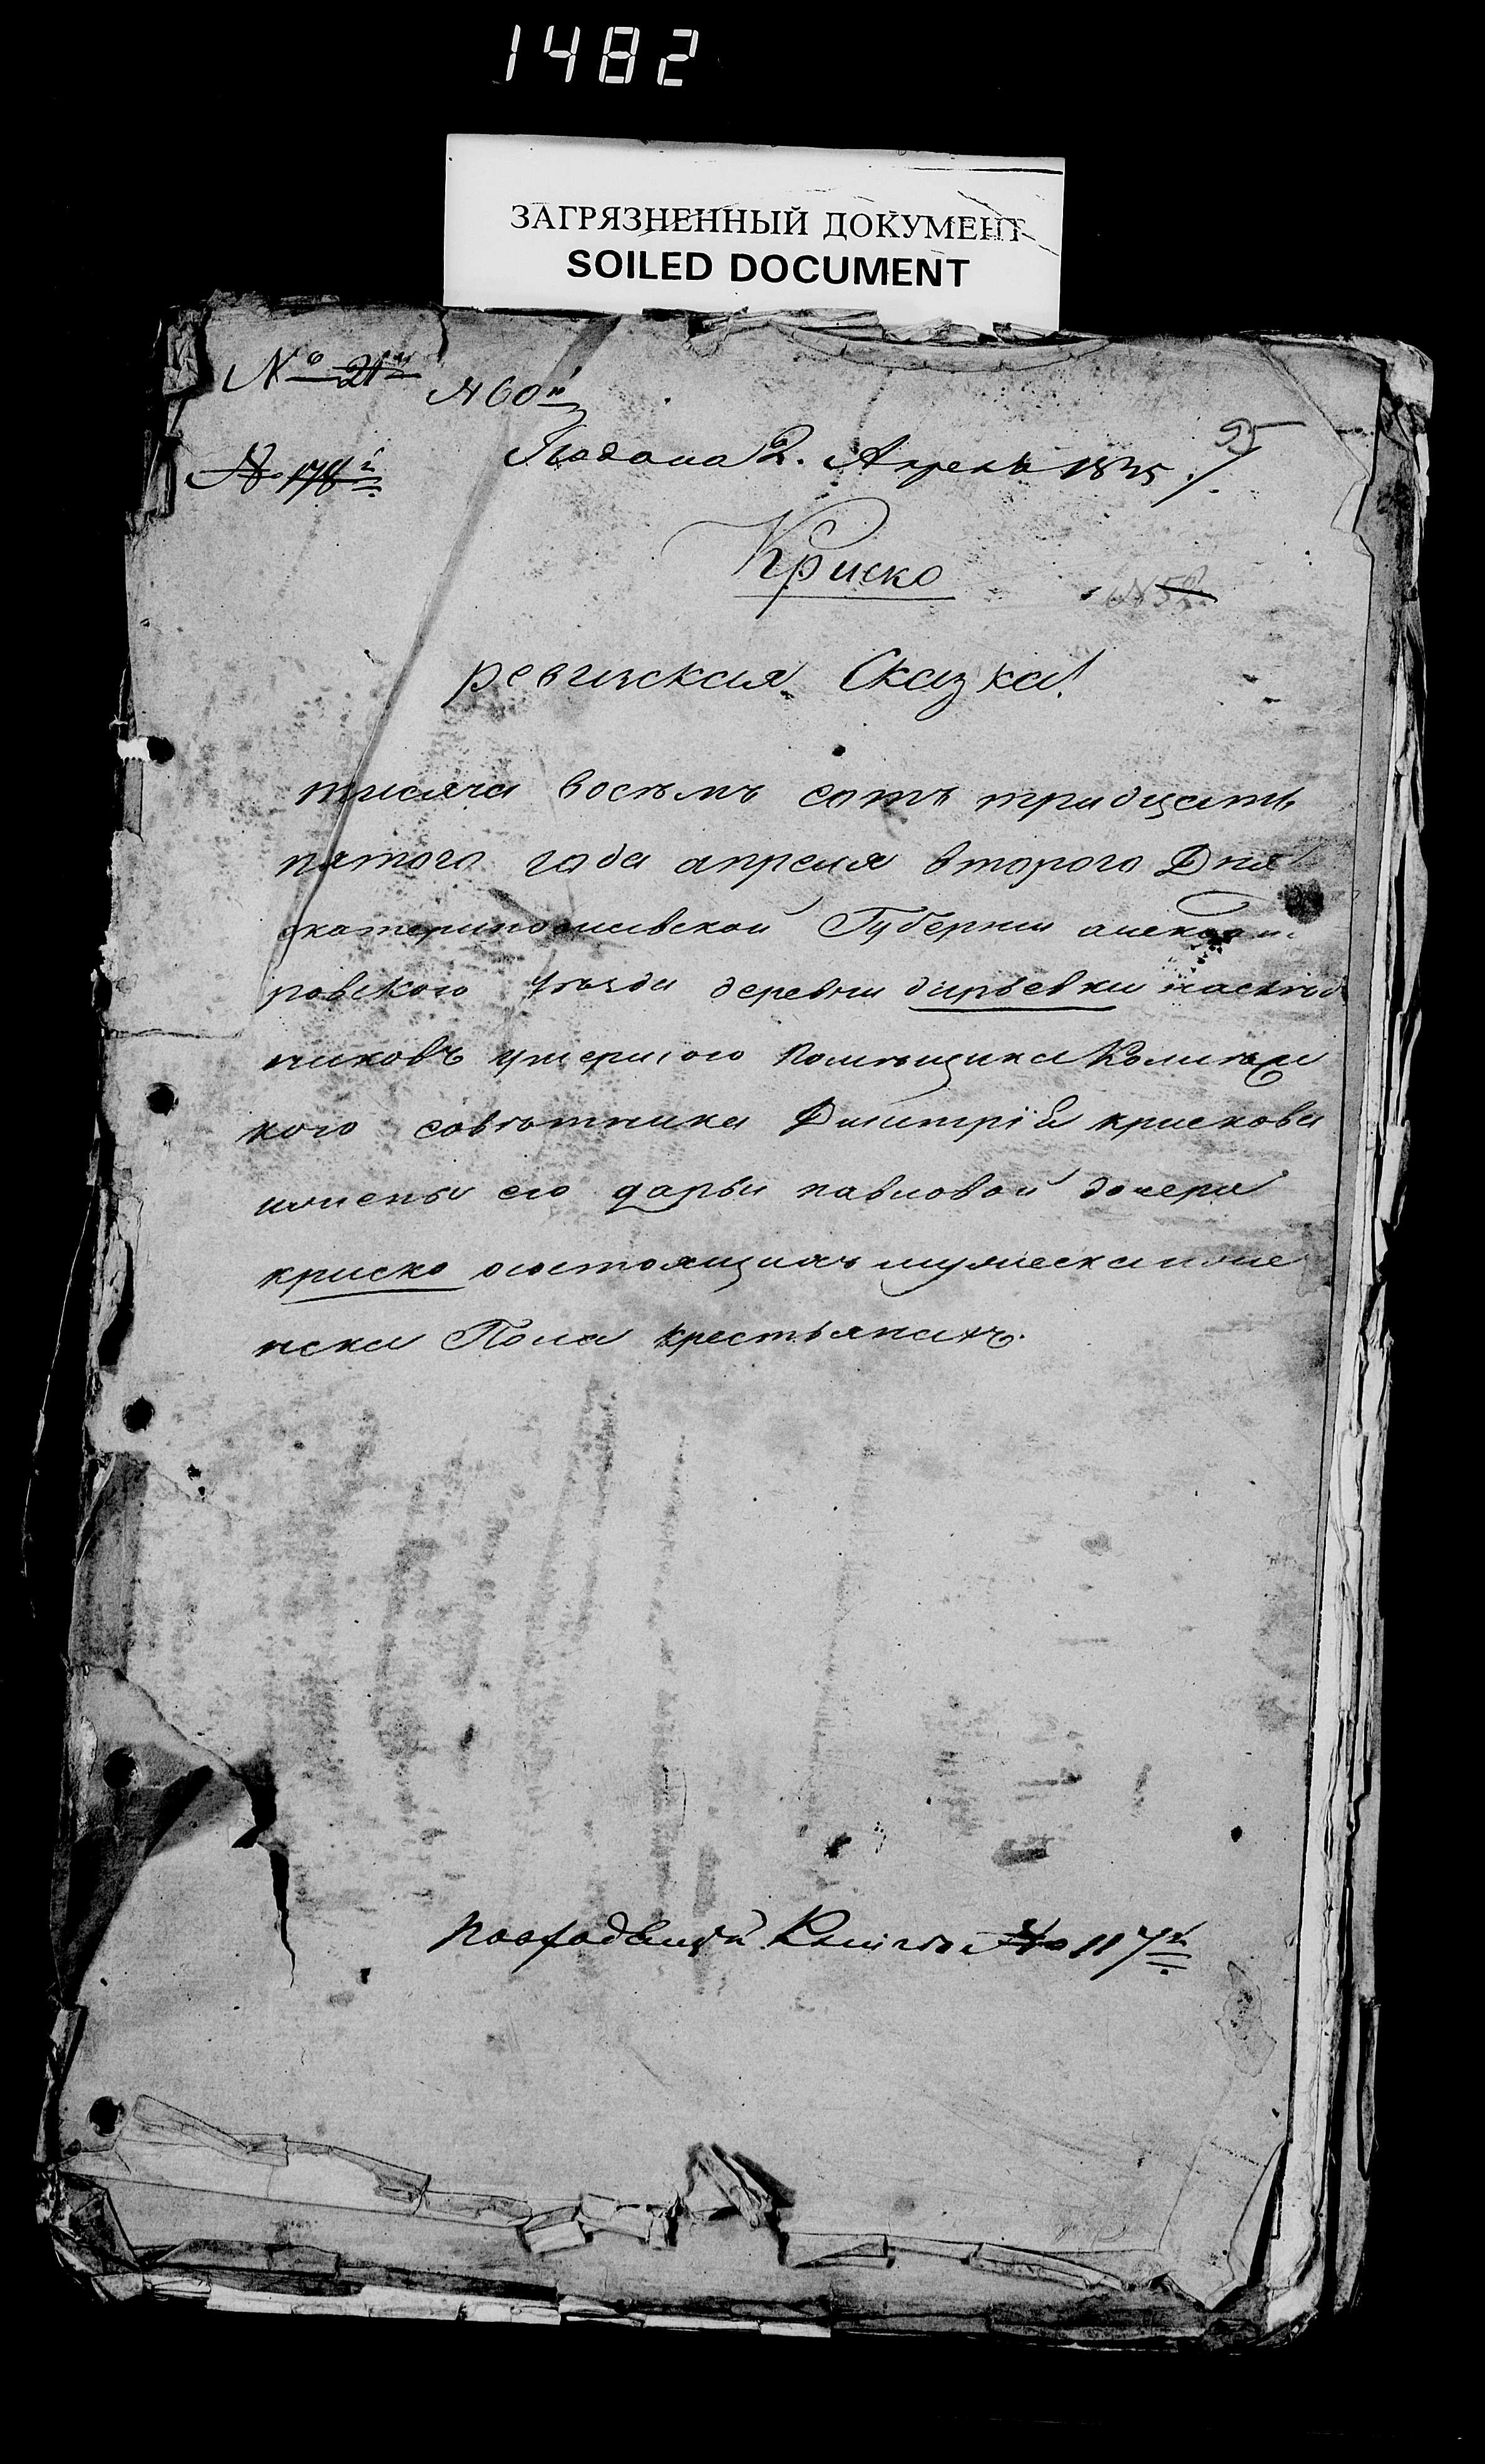 1482
ЗАГРЯЗНЕННЫЙ ДОКУМЕНТ
SOILED DOCUMENT
№ 21й
№ 60й
№ 178й
95
Подана 2. Апрель 1835
Криско
№ 52
ревизская Сказка!
тисяча восѣмъ сотъ тридцать
пятого года апреля второго Дня
екатеринославской Губернии алексан
ровского уѣзда деревни дарьевки наслѣд
никовъ умершого помѣщика Колижс
кого совѣтника Димитрiя крискова
жены его дарьи павловой дочери
криско состоящихъ мужеска и же
нска Пола крестьянахъ.
Книги № 117й